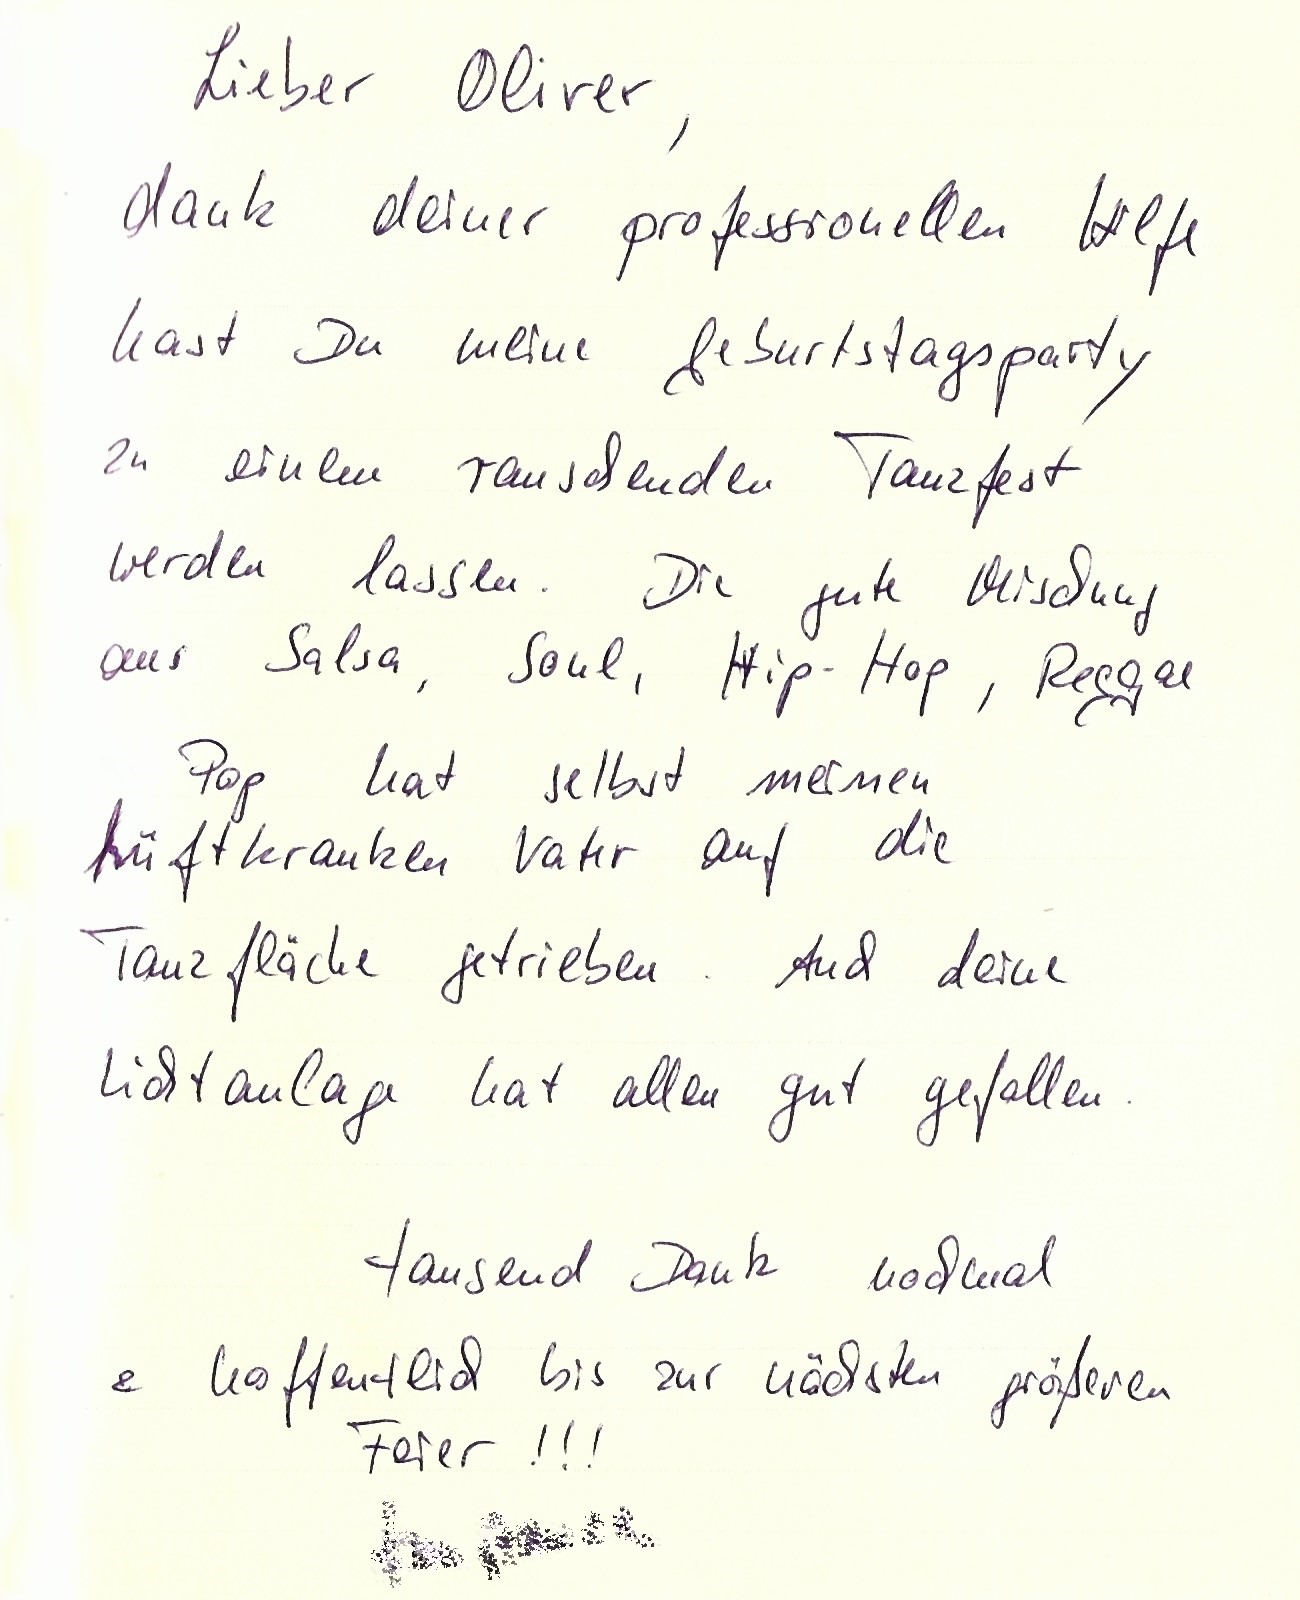 Lieber Oliver,
dank deiner professionellen Hilfe
hast Du meine Geburtstagsparty
zu einem rauschenden Tanzfest
werden lassen. Die gute Mischung
aus Salsa, Soul, Hip-Hop, Reggae
Pop hat selbst meinen
hüftkranken Vater auf die
Tanzfläche getrieben. Auch deine
Lichtanlage hat allen gut gefallen.
tausend Dank nochmal
& hoffentlich bis zur nächsten größeren
Feier !!!